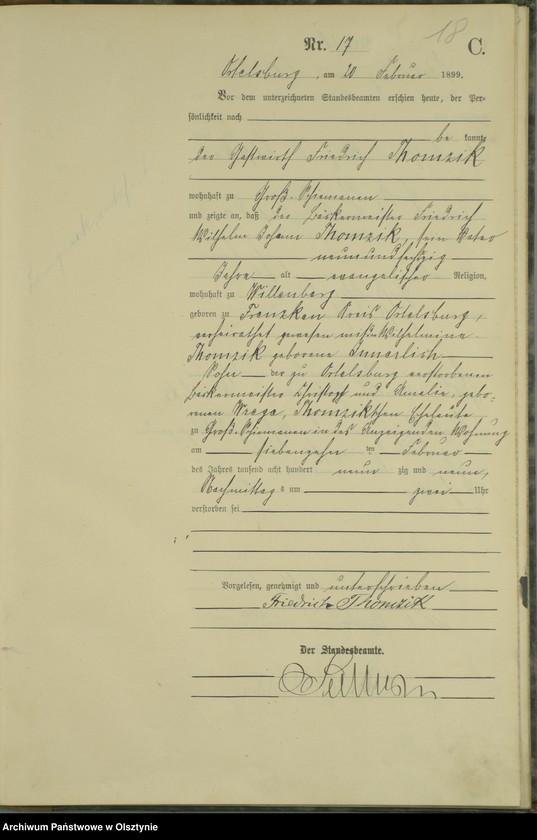 18
Nr. 17 C.
Ortelsburg, am 20 Februar 1899.
Vor dem unterzeichneten Standesbeamten erschien heute, der Per-
sönlichkeit nach
be kannt
der Gastwirth Friedrich Thomzik
wohnhaft zu Groß Schiemanen
und zeigte an, daß der Bäckermeister Friedrich
Wilhelm Johann Thomzik, sein Vater
neunundsechzig
Jahre alt evangelischer Religion,
wohnhaft zu Willenberg
geboren zu Kreis Ortelsburg,
verheirathet gewesen mit Wilhelmine
Thomzik geborene
Sohn der zu Ortelsburg verstorbenen
Bäckermeister Christoph und Amalie, gebo-
renen Thomzikschen Eheleute
zu Groß-Schiemanen in des Anzeigenden Wohnung
am siebenzehn ten Februar
des Jahres tausend acht hundert neun zig und neun,
Nachmittags um zwei Uhr
verstorben sei
Vorgelesen, genehmigt und unterschrieben
Friedrich Thomzik
Der Standesbeamte.
Archiwum Państwowe w Olsztynie